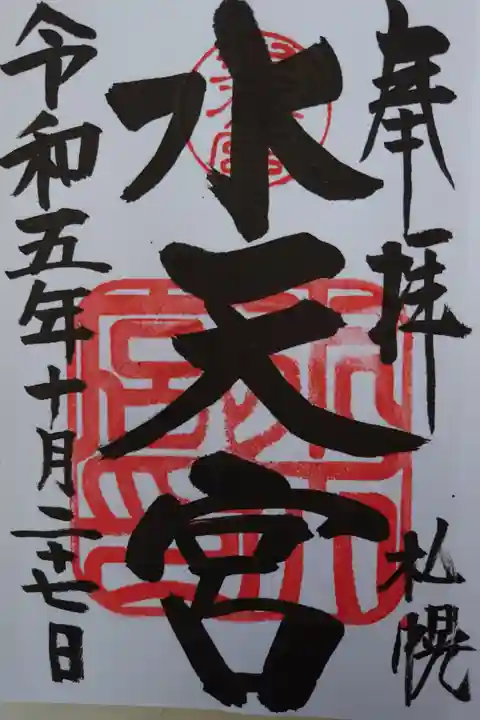 奉拝
札幌
水天宮
令和五年十月二十七日